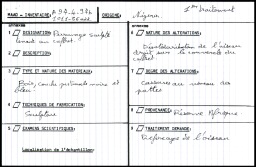 MANO - INVENTAIRE: ORIGINE: Nigeria. 1er traitement
1 DESIGNATION: Personnage sculpté
tenant un coffret
2 DESCRIPTION:
3 TYPE ET NATURE DES MATERIAUX:
Bois,
bleu
4 TECHNIQUES DE FABRICATION:
Sculpture
5 EXAMENS SCIENTIFIQUES:
Localisation de l'échantillon:
6 NATURE DES ALTERATIONS:
Désolidarisation de l'oiseau
droit sur le couvercle du
coffret
7 DEGRE DES ALTERATIONS:
Cassures au niveau des
pattes
8 PROVENANCE: Réserve Afrique
9 TRAITEMENT DEMANDE:
Refixage de l'oiseau